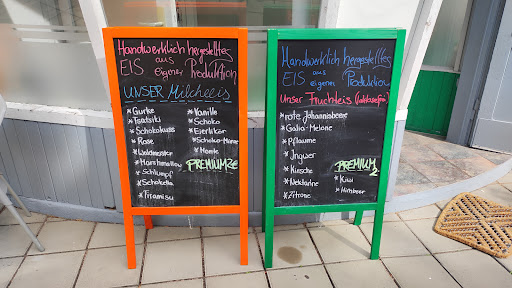 Handwerklich hergestelltes
EIS aus eigener Produktion
UNSER Milcheis
* Gurke
* Tsatsiki
* Schokokuss
* Rose
* Waldmeister
* Marshmallow
* Schlumpf
* Schoketta
* Tiramisu
* Vanille
* Schoko
* Eierlikör
PREMIUM 2€
Handwerklich hergestelltes
EIS aus eigener Produktion
Unser Fruchteis
* rote Johannisbeer
* Galia-Melone
* Pflaume
* Ingwer
* Kirsche
* Nektarine
* Zitrone
PREMIUM
* Kiwi
* Himbeer